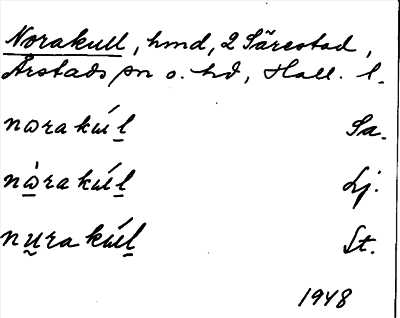 Norakull, hmd, 2 Särestad,
Årstads sn o. hd, Hall. l.
norakúl̲ Sa.
nὼ̲rakúl̲ Lj.
nu̲rakúl̲ St.
1948